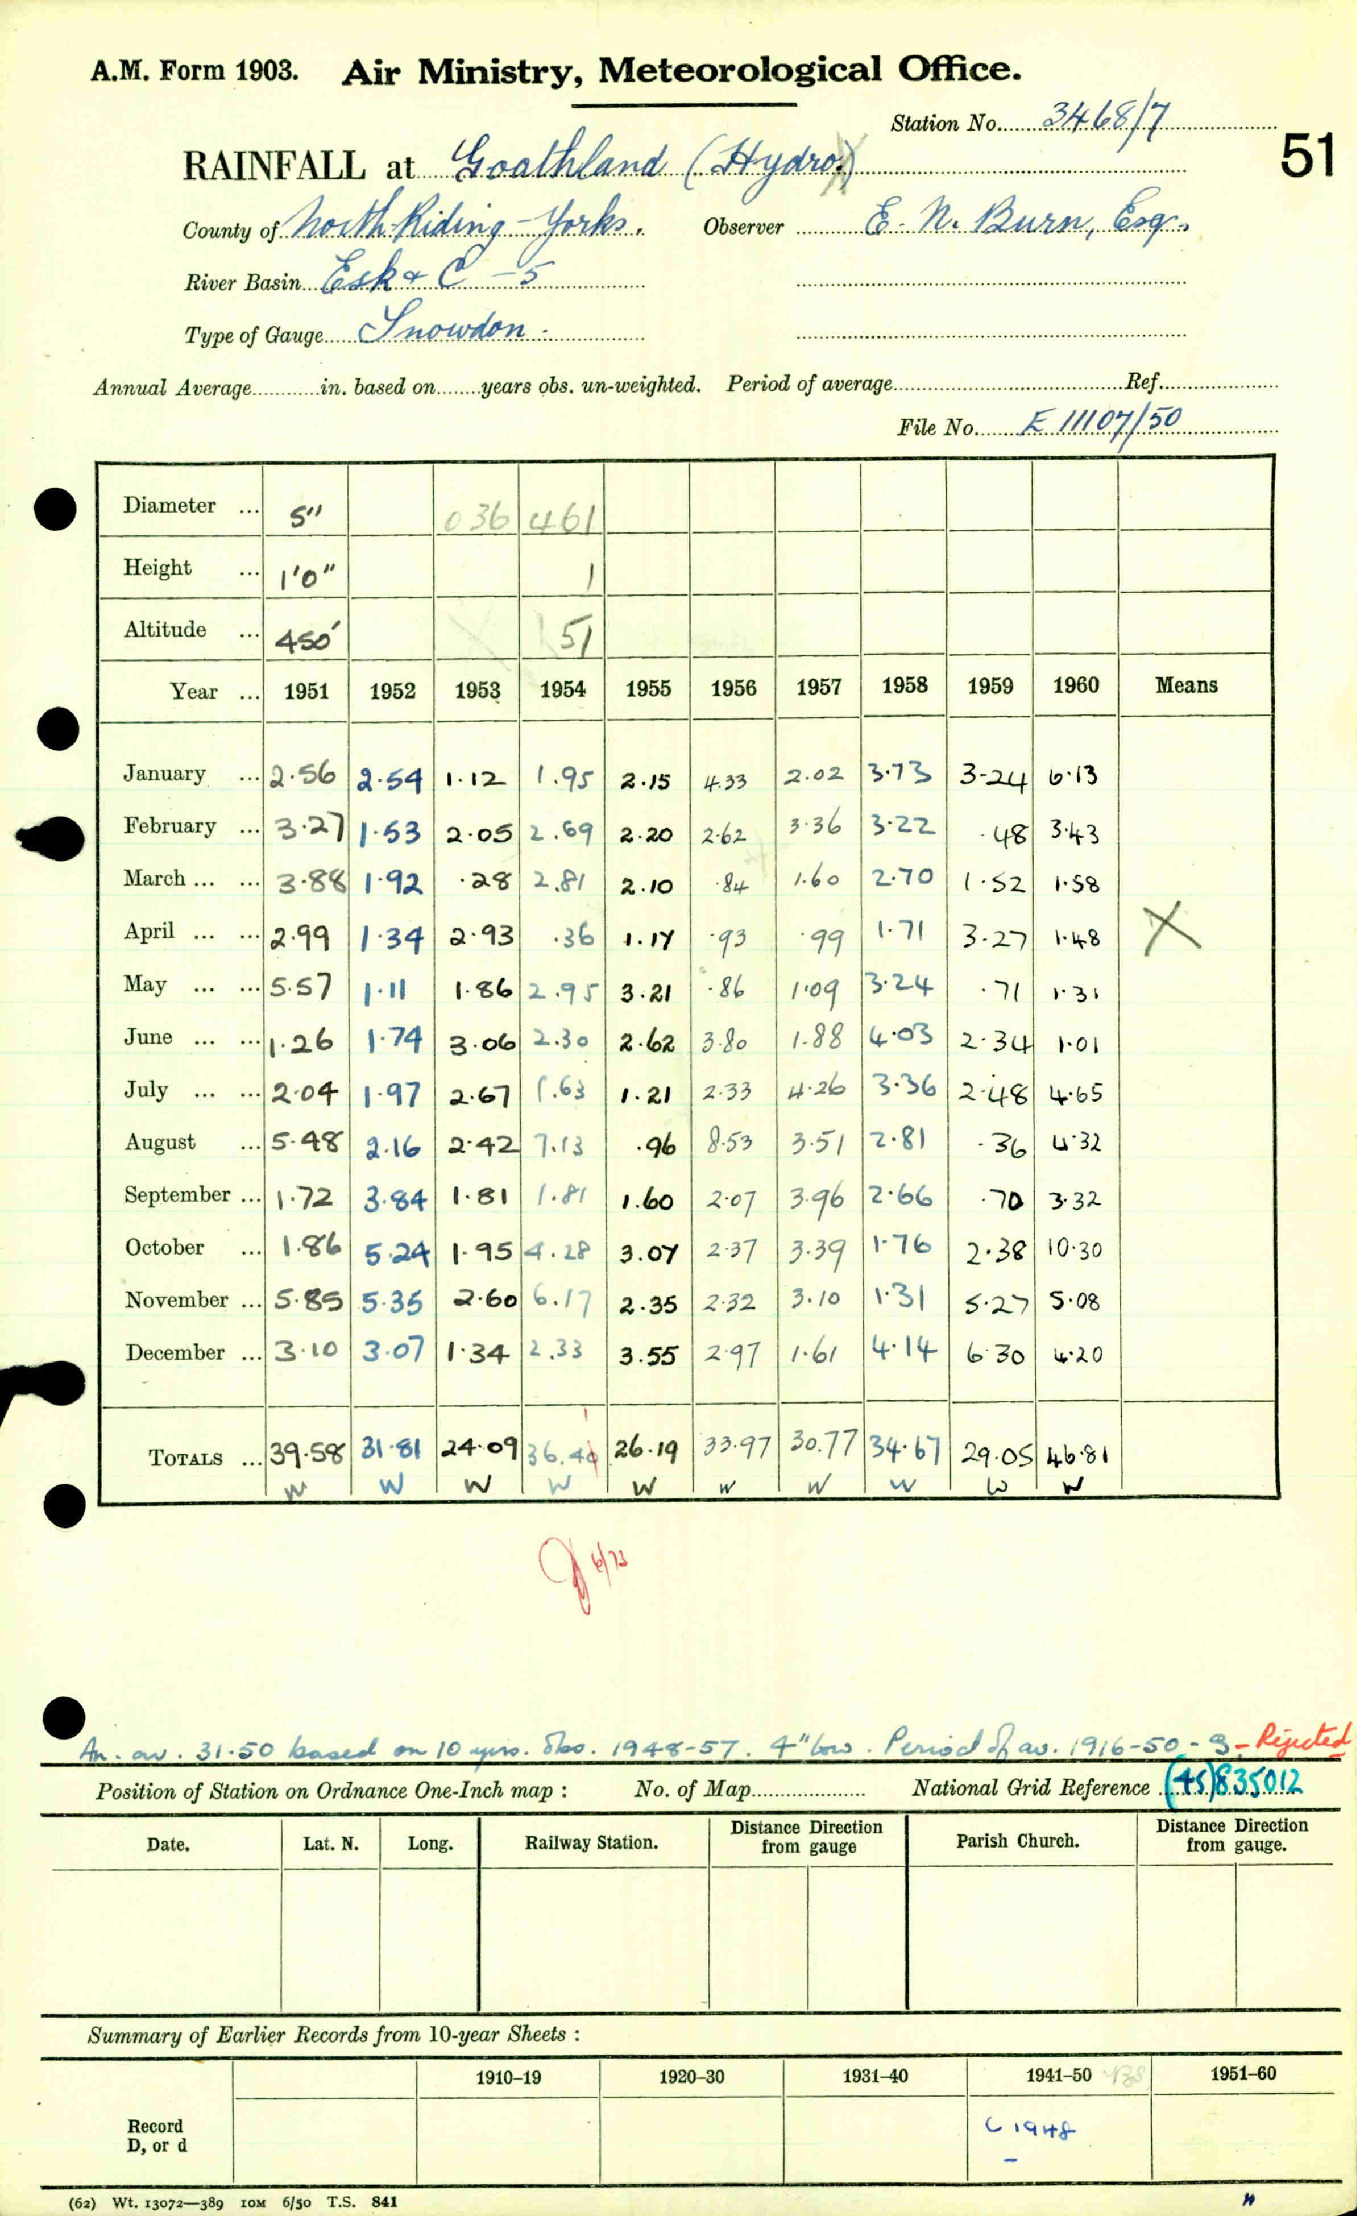 A.M. Form 1903. Air Ministry, Meteorological Office.
Station No. 3468/7
51
RAINFALL at Goathland (Hydro.)
County of North Riding - Yorks. Observer E. N. Burn, Esq.
River Basin Esk & C - 5
Type of Gauge Snowdon.
Annual Average in. based on years obs. un-weighted. Period of average Ref.
File No. E 11107/50
Diameter ... 5" 036 461
Height ... 1'0" 1
Altitude ... 450' 51
Year ... 1951 1952 1953 1954 1955 1956 1957 1958 1959 1960 Means
January ... 2.56 2.54 1.12 1.95 2.15 4.33 2.02 3.73 3.24 6.13
February ... 3.27 1.53 2.05 2.69 2.20 2.62 3.36 3.22 .48 3.43
March ... ... 3.88 1.92 .28 2.81 2.10 .84 1.60 2.70 1.52 1.58
April ... ... 2.99 1.34 2.93 .36 1.17 .93 .99 1.71 3.27 1.48 X
May ... ... 5.57 1.11 1.86 2.95 3.21 .86 1.09 3.24 .71 1.31
June ... ... 1.26 1.74 3.06 2.30 2.62 3.80 1.88 4.03 2.34 1.01
July ... ... 2.04 1.97 2.67 1.63 1.21 2.33 4.26 3.36 2.48 4.65
August ... 5.48 2.16 2.42 7.13 .96 8.53 3.51 2.81 .36 4.32
September ... 1.72 3.84 1.81 1.81 1.60 2.07 3.96 2.66 .70 3.32
October ... 1.86 5.24 1.95 4.28 3.07 2.37 3.39 1.76 2.38 10.30
November ... 5.85 5.35 2.60 6.17 2.35 2.32 3.10 1.31 5.27 5.08
December ... 3.10 3.07 1.34 2.33 3.55 2.97 1.61 4.14 6.30 4.20
1
TOTALS ... 39.58 31.81 24.09 36.40 26.19 33.97 30.77 34.67 29.05 46.81
W W W W W W W W W W
6/73
An. av. 31.50 based on 10 yrs. Obs. 1948-57. 4" low. Period of av. 1916-50 - 3 - Rejected
Position of Station on Ordnance One-Inch map : No. of Map National Grid Reference (45)835012
Date. Lat. N. Long. Railway Station. Distance Direction from gauge Parish Church. Distance Direction from gauge.
Summary of Earlier Records from 10-year Sheets :
1910–19 1920–30 1931–40 1941–50 1951–60
Record
D, or d
C 1948
(62) Wt. 13072—389 10M 6/50 T.S. 841